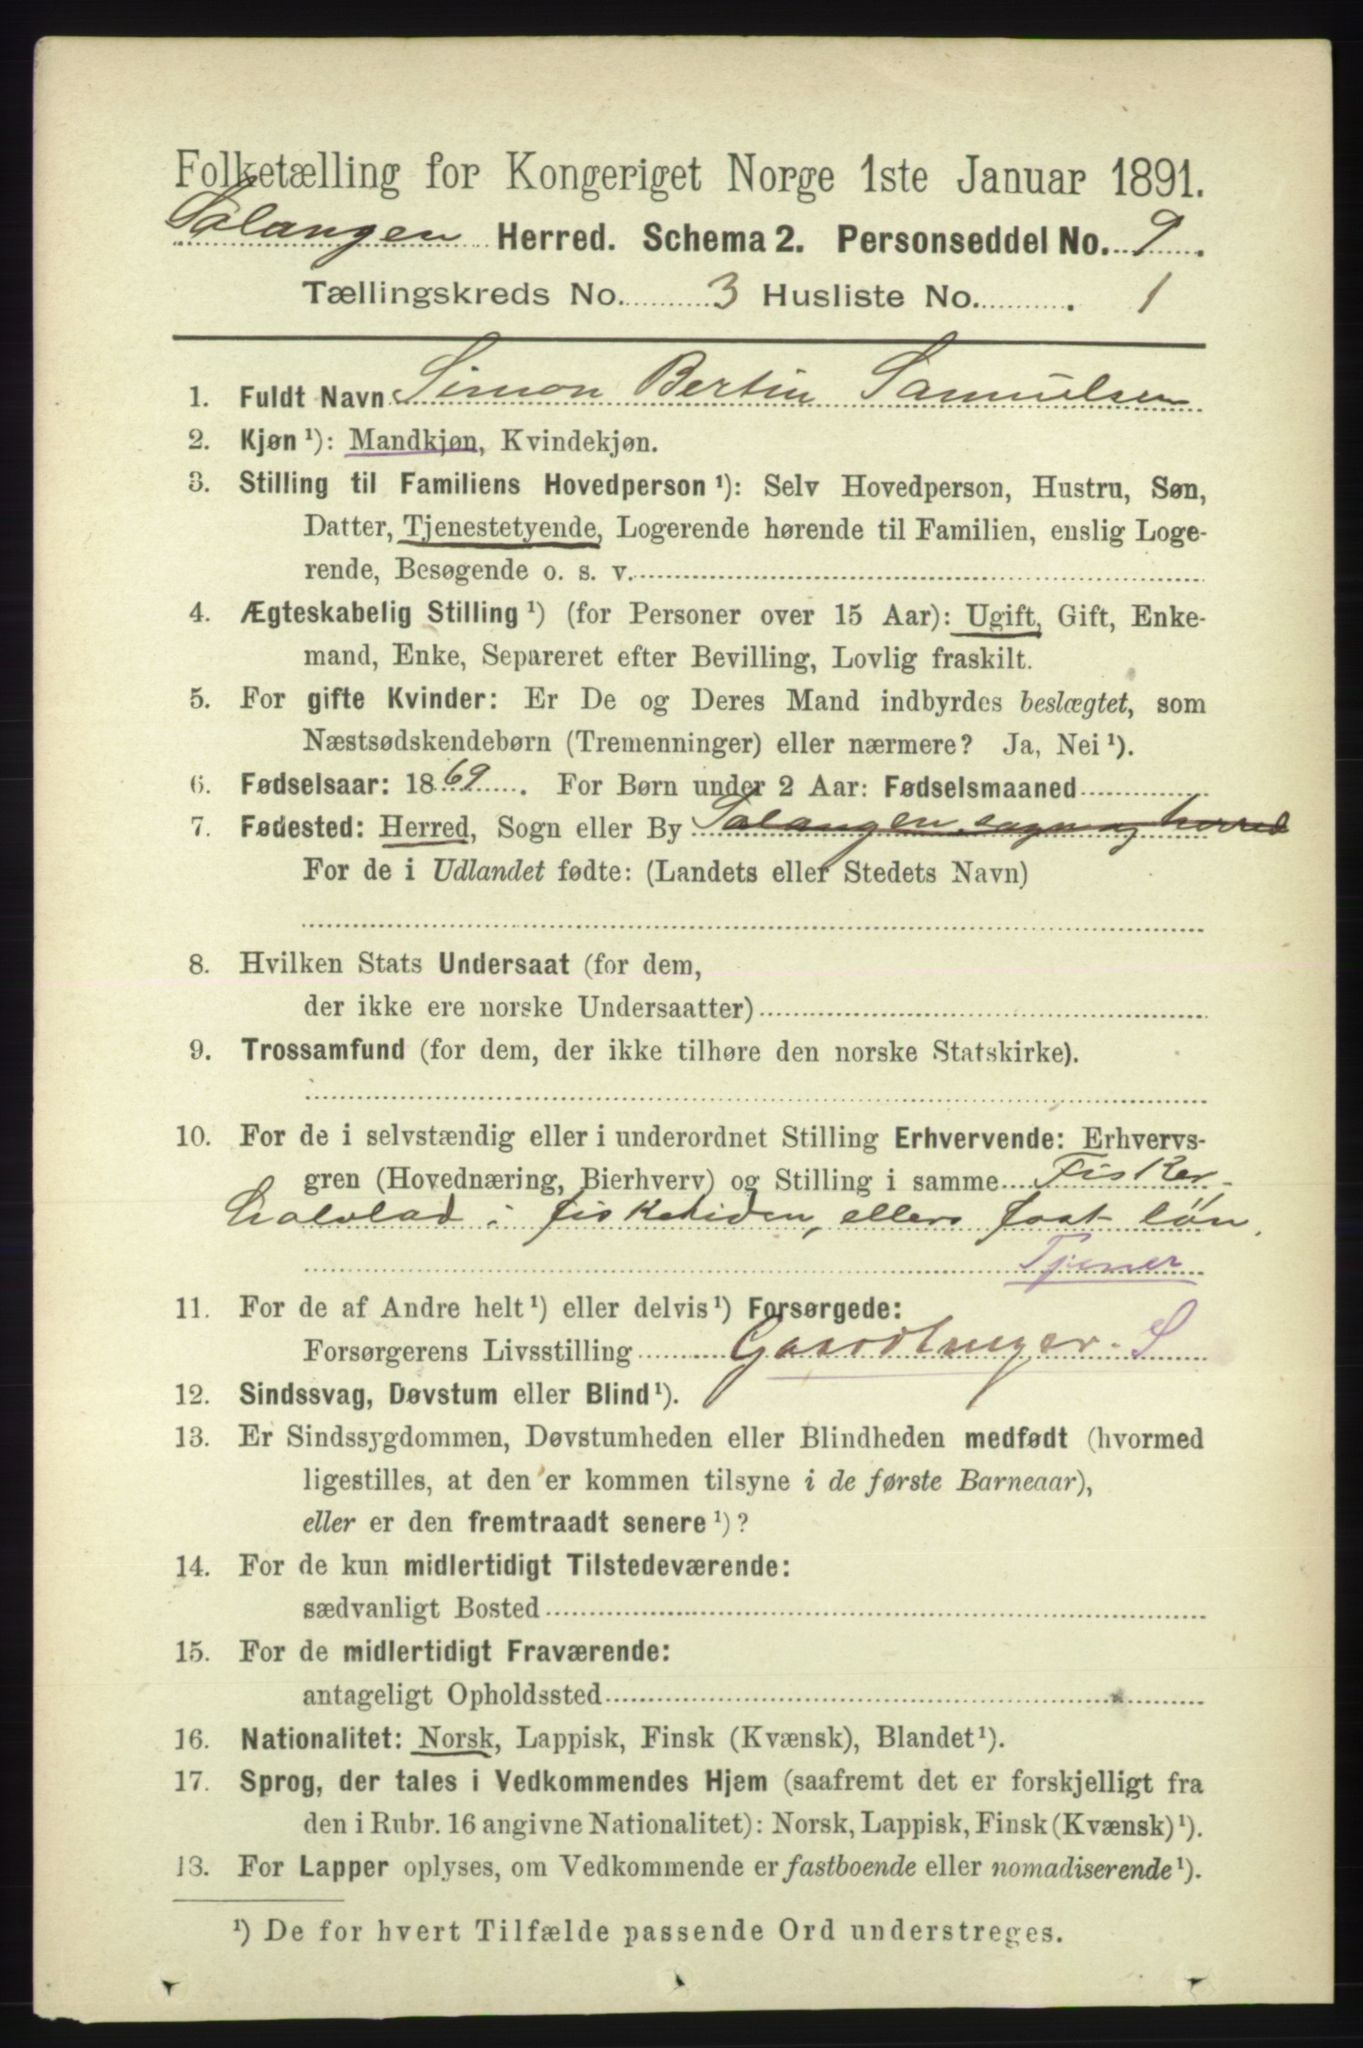 Folketælling for Kongeriget Norge 1ste Januar 1891.
Salangen Herred. Schema 2. Personseddel No. 9.
Tællingskreds No. 3 Husliste No. 1
1. Fuldt Navn Simon Bertin Samuelsen
2. Kjøn ¹): Mandkjøn, Kvindekjøn.
3. Stilling til Familiens Hovedperson ¹): Selv Hovedperson, Hustru, Søn,
Datter, Tjenestetyende, Logerende hørende til Familien, enslig Loge-
rende, Besøgende o. s. v.
4. Ægteskabelig Stilling ¹) (for Personer over 15 Aar): Ugift, Gift, Enke-
mand, Enke, Separeret efter Bevilling, Lovlig fraskilt.
5. For gifte Kvinder: Er De og Deres Mand indbyrdes beslægtet, som
Næstsødskendebørn (Tremenninger) eller nærmere? Ja, Nei ¹).
6. Fødselsaar: 1869. For Børn under 2 Aar: Fødselsmaaned
7. Fødested: Herred, Sogn eller By Salangen sogn og herred
For de i Udlandet fødte: (Landets eller Stedets Navn)
8. Hvilken Stats Undersaat (for dem,
der ikke ere norske Undersaatter)
9. Trossamfund (for dem, der ikke tilhøre den norske Statskirke).
10. For de i selvstændig eller i underordnet Stilling Erhvervende: Erhvervs-
gren (Hovednæring, Bierhverv) og Stilling i samme Fisker,
halvlod i fisketiden, ellers fast løn.
Tjener
11. For de af Andre helt ¹) eller delvis ¹) Forsørgede:
Forsørgerens Livsstilling Gaardbruger. S
12. Sindssvag, Døvstum eller Blind ¹).
13. Er Sindssygdommen, Døvstumheden eller Blindheden medfødt (hvormed
ligestilles, at den er kommen tilsyne i de første Barneaar),
eller er den fremtraadt senere ¹)?
14. For de kun midlertidigt Tilstedeværende:
sædvanligt Bosted
15. For de midlertidigt Fraværende:
antageligt Opholdssted
16. Nationalitet: Norsk, Lappisk, Finsk (Kvænsk), Blandet ¹).
17. Sprog, der tales i Vedkommendes Hjem (saafremt det er forskjelligt fra
den i Rubr. 16 angivne Nationalitet): Norsk, Lappisk, Finsk (Kvænsk) ¹).
13. For Lapper oplyses, om Vedkommende er fastboende eller nomadiserende ¹).
¹) De for hvert Tilfælde passende Ord understreges.